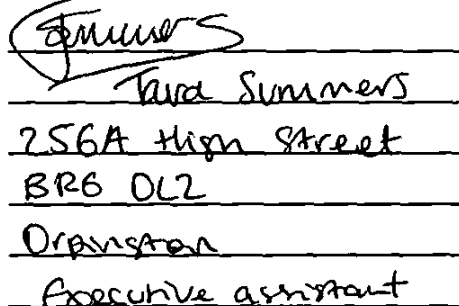 Summers
Tara Summers
256A High Street
BR6 0LZ
Orpington
Executive assistant